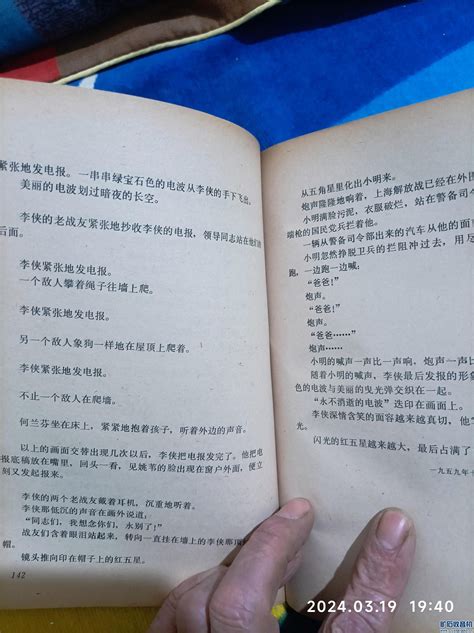 紧张地发电报。一串串绿宝石色的电波从李侠的手下飞出。
美丽的电波划过暗夜的长空。
李侠的老战友紧张地抄收李侠的电报，领导同志站在他们的
后面。
李侠紧张地发电报。
一个敌人攀着绳子往墙上爬。
李侠紧张地发电报。
另一个敌人象狗一样地在屋顶上爬着。
李侠紧张地发电报。
不止一个敌人在爬墙。
何兰芬坐在床上，紧紧地抱着孩子，听着外边的声音。
以上的画面交替出现几次以后，李侠把电报发完了。他把电
报底稿放在嘴里。回头一看，见姚苇的脸出现在窗户外面，便立
刻又发起报来。
李侠的两个老战友戴着耳机，沉重地听着。
李侠那低沉的声音在画外说道，
“同志们，我想念你们，永别了！”
战友们含着眼泪站起来，转向一直挂在墙上的李侠
帽。
镜头推向印在帽子上的红五星。
142
从五角星里化出小明来。
炮声隆隆地响着，上海解放战已经在外围
小明满脸污泥，衣服破烂，站在警备司令
端枪的国民党兵拦着他。
一辆从警备司令部出来的汽车从他的面
小明忽然挣脱卫兵的拦阻冲过去，用尽
跑，一边跑一边喊：
“爸爸！”
炮声。
“爸爸！”
炮声。
“爸爸……”
炮声……
小明的喊声一声比一声响，炮声一声比
随着小明的喊声，李侠最后发报的形象
色的电波与美丽的曳光弹交织在一起。
“永不消逝的电波”迭印在画面上。
李侠深情含笑的面容越来越真切，何
闪光的红五星越来越大，最后占满了
一九五九年十
2024.03.19 19:40
矿石收音机